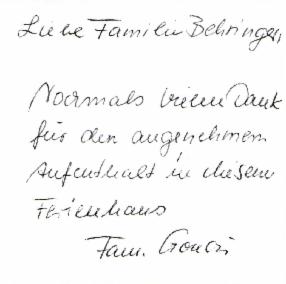 Liebe Familie Behringer,
Nocmals vielen Dank
für den angenehmen
Aufenthalt in diesem
Ferienhaus
Fam.